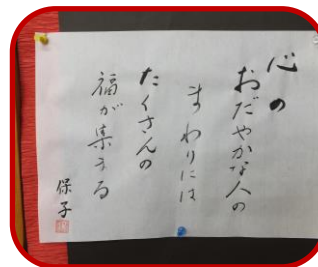 心の
おだやかな人の
まわりには
たくさんの
福が集まる
保子